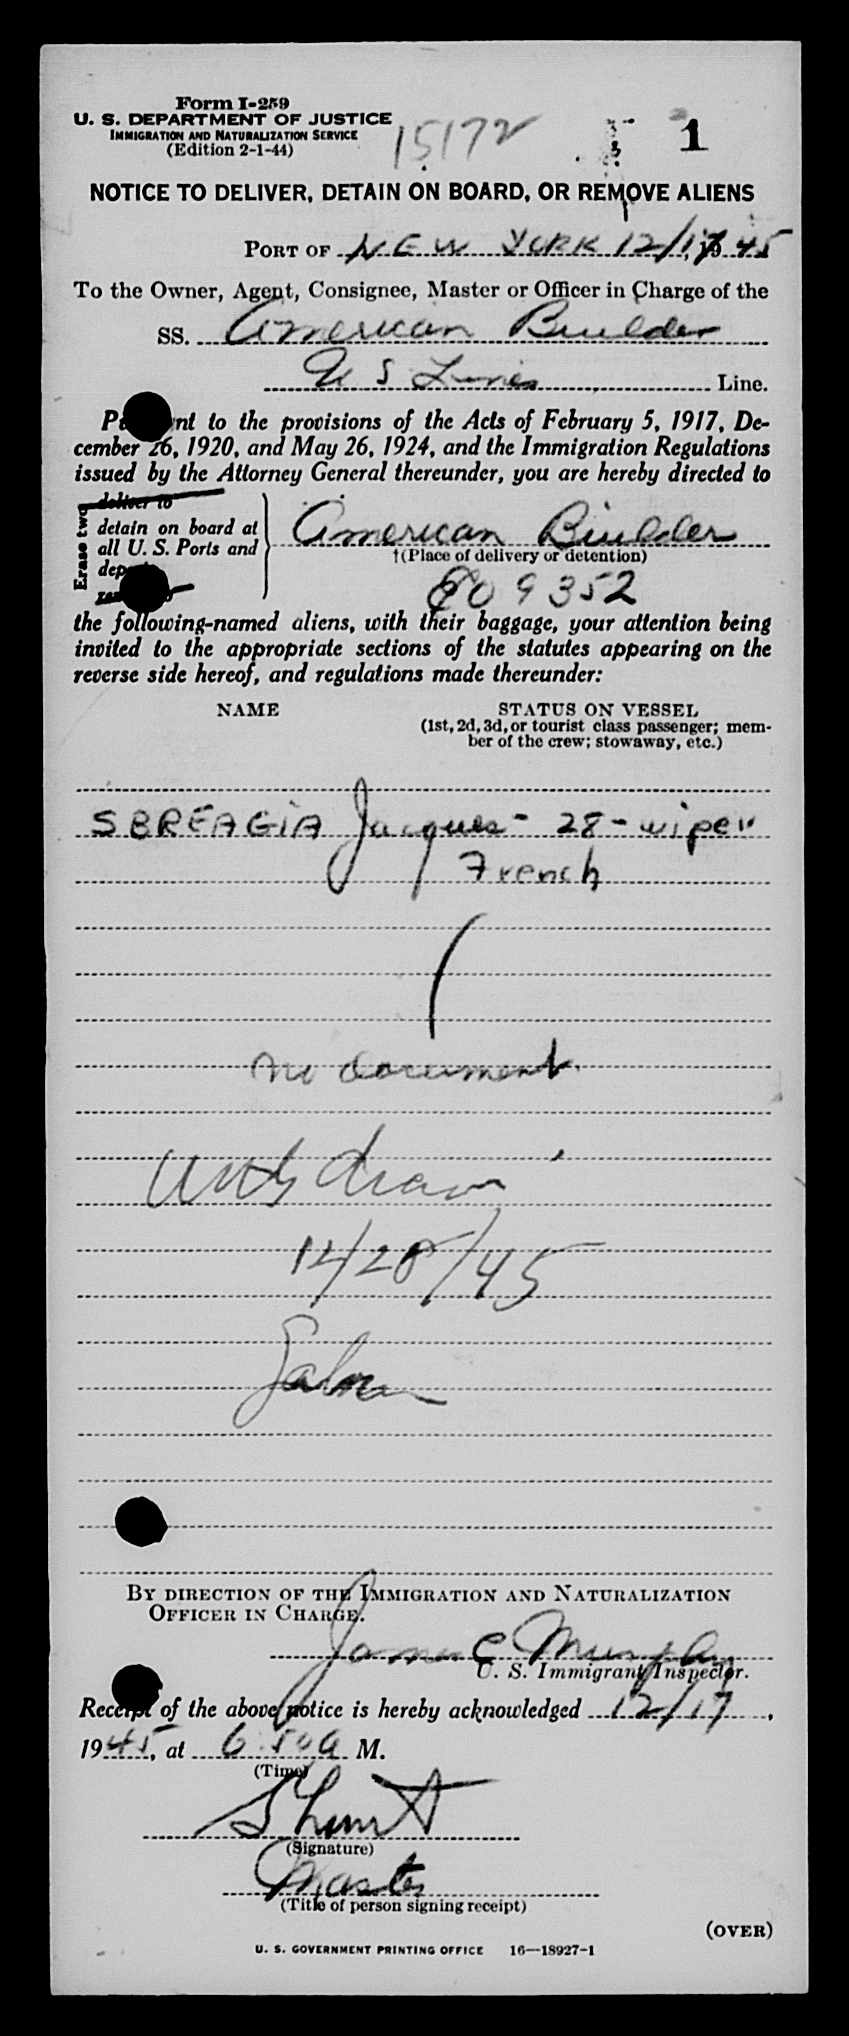 Form I-259
U. S. DEPARTMENT OF JUSTICE
IMMIGRATION AND NATURALIZATION SERVICE
(Edition 2-1-44)
15172
1
NOTICE TO DELIVER, DETAIN ON BOARD, OR REMOVE ALIENS
PORT OF NEW YORK 12/17, 1945
To the Owner, Agent, Consignee, Master or Officer in Charge of the
SS. American Builder
U S Lines Line.
nt to the provisions of the Acts of February 5, 1917, De-
cember 26, 1920, and May 26, 1924, and the Immigration Regulations
issued by the Attorney General thereunder, you are hereby directed to
Erase two
deliver to
detain on board at
all U. S. Ports and
American Builder
†(Place of delivery or detention)
809352
the following-named aliens, with their baggage, your attention being
invited to the appropriate sections of the statutes appearing on the
reverse side hereof, and regulations made thereunder:
NAME
STATUS ON VESSEL
(1st, 2d, 3d, or tourist class passenger; mem-
ber of the crew; stowaway, etc.)
SBREAGIA Jacques - 28 - wiper
French
no document.
Withdrawn
12/28/45
BY DIRECTION OF THE IMMIGRATION AND NATURALIZATION
OFFICER IN CHARGE.
James C Murphy
U. S. Immigrant Inspector.
Receipt of the above notice is hereby acknowledged 12/17,
1945, at 6 50 A M.
(Time)
(Signature)
Master
(Title of person signing receipt)
(OVER)
U. S. GOVERNMENT PRINTING OFFICE 16—18927-1